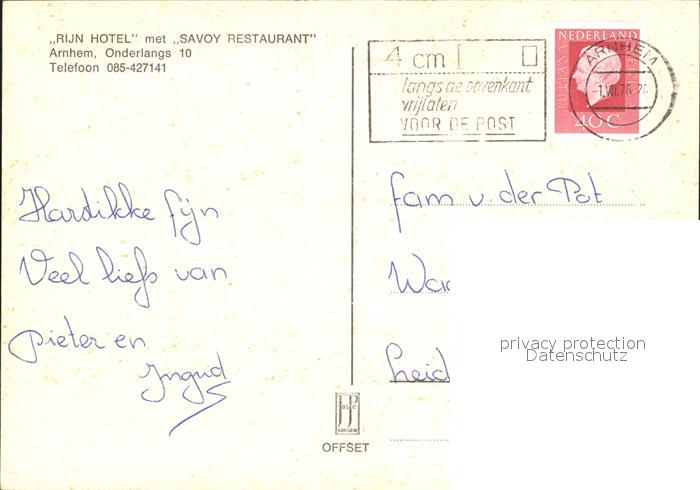 „RIJN HOTEL" met „SAVOY RESTAURANT"
Arnhem, Onderlangs 10
Telefoon 085-427141
Hardikke fijn
Veel liefs van
pieter en
Ingrid
OFFSET
4 cm
langs de bovenkant
vrijlaten
VOOR DE POST
NEDERLAND
JULIANA
40 C
ARNHEM
-1.VII.76
fam v. der Pot
privacy protection
Datenschutz